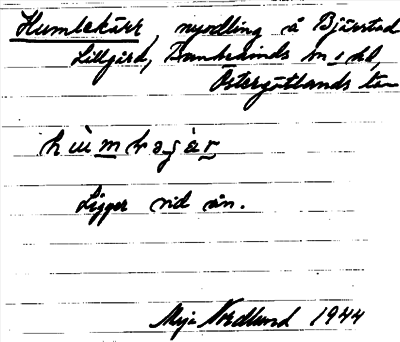 Humlekärr, nyodling å Bjärstad
Lillgård, Bankekinds sn o hd,
Östergötlands län
Ligger vid ån.
Maja Nordlund 1944